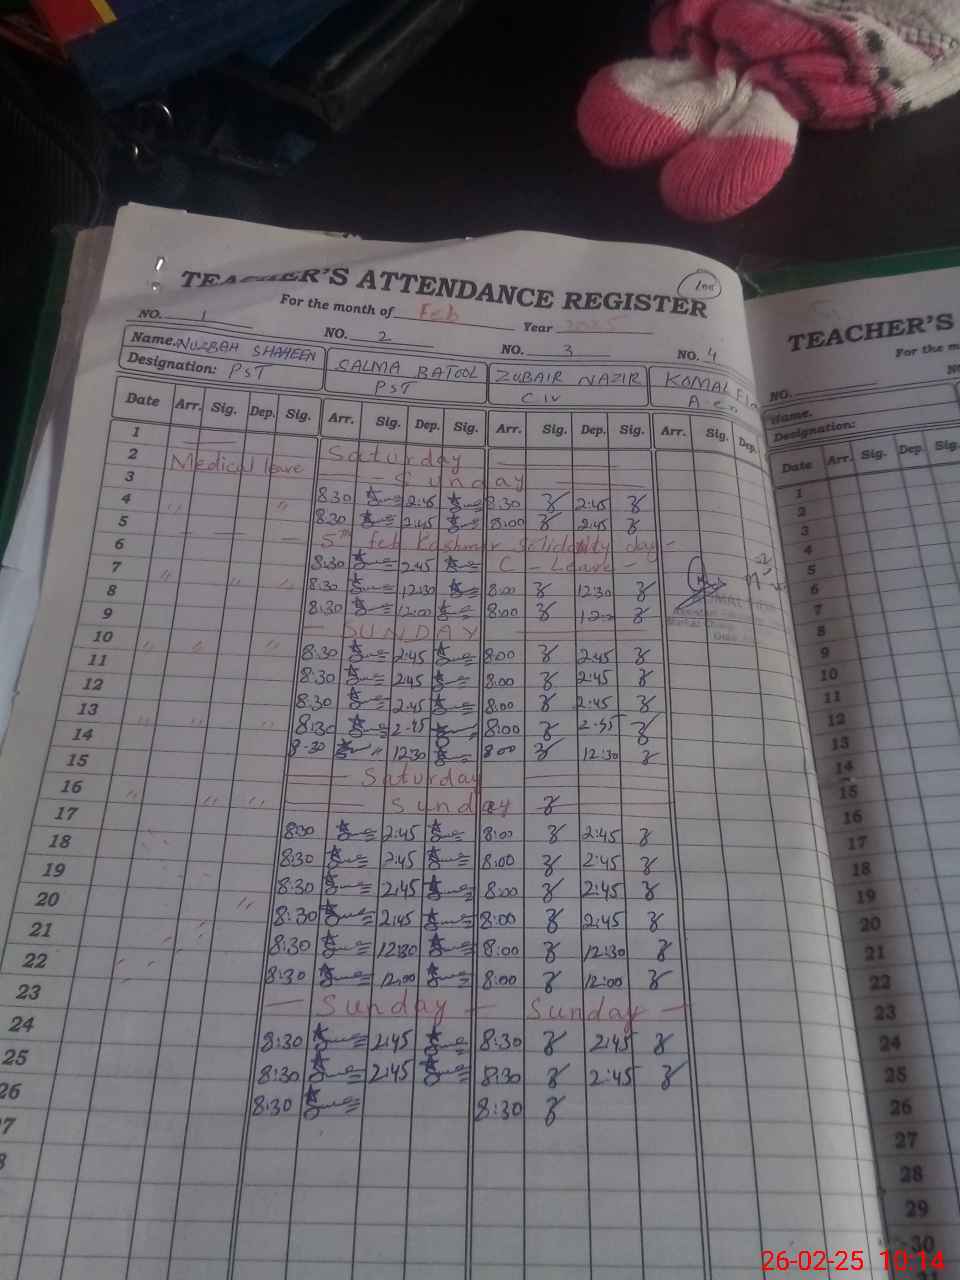 TEACHER'S ATTENDANCE REGISTER
For the month of Feb Year 2025
NO. 1 NO. 2 NO. 3 NO. 4
Name. NUZBAH SHAHEEN SALMA BATOOL ZUBAIR NAZIR KOMAL
Designation: PST PST C IV
Date Arr. Sig. Dep. Sig. Arr. Sig. Dep. Sig. Arr. Sig. Dep. Sig. Arr. Sig. Dep.
1 Saturday
2 Medical leave Sunday
3 8:30 2:45 8:30 2:45
4 " " 8:30 2:45 8:00 2:45
5 5th feb Kashmir Solidarity day
6 8:30 2:45 C - Leave -
7 " " " 8:30 12:30 8:00 12:30
8 8:30 12:00 8:00
9 SUNDAY
10 " " " 8:30 2:45 8:00 2:45
11 8:30 2:45 8:00 2:45
12 8:30 2:45 8:00 2:45
13 " " " 8:30 2:45 8:00 2:45
14 8:30 12:30 8:00 12:30
15 Saturday
16 " " " Sunday
17 8:30 2:45 8:00 2:45
18 8:30 2:45 8:00 2:45
19 8:30 2:45 8:00 2:45
20 " 8:30 2:45 8:00 2:45
21 8:30 12:30 8:00 12:30
22 8:30 12:00 8:00 12:00
23 Sunday Sunday
24 8:30 2:45 8:30 2:45
25 8:30 2:45 8:30 2:45
26 8:30 8:30
7
8
TEACHER'S
For the m
NO.
Name.
Designation:
Date Arr. Sig. Dep. Sig.
1
2
3
4
5
6
7
8
9
10
11
12
13
14
15
16
17
18
19
20
21
22
23
24
25
26
27
28
29
30
26-02-25 10:14